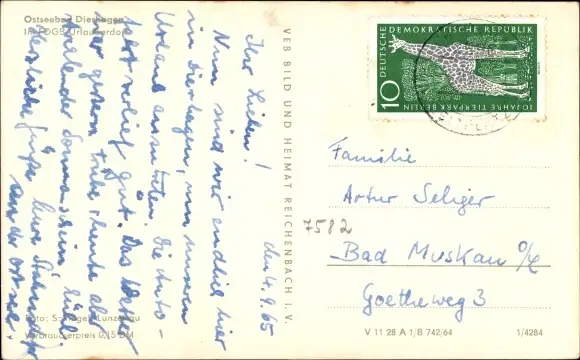 Ostseebad Dierhagen
Im FDGB-Urlauberdorf
den 4.9.65
Ihr Lieben!
Nun sind wir endlich hier
in Dierhagen, um unseren
Urlaub anzutreten. Die Auto-
fahrt verlief gut. Das Wetter
war gestern trübe, heute aber
strahlender Sonnenschein.
Herzliche Grüße
von der Ostsee.
Foto: Schlegel, Lunzenau
Verbraucherpreis 0,15 DM
VEB BILD UND HEIMAT REICHENBACH I. V.
DEUTSCHE DEMOKRATISCHE REPUBLIK
10
10 JAHRE TIERPARK BERLIN
Familie
Artur Seliger
7582
Bad Muskau O/L
Goetheweg 3
V 11 28 A 1/B 742/64
1/4284